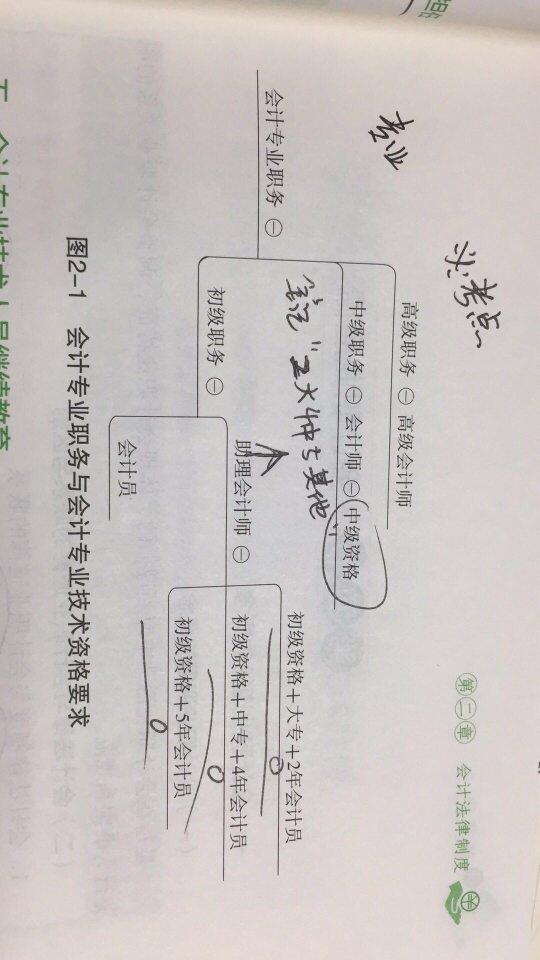 第二章 会计法律制度
考点
高级职务 高级会计师
专业
中级职务 会计师 中级资格
会计专业职务
"2大4中5其他"
初级资格+大专+2年会计员
助理会计师
初级资格+中专+4年会计员
初级职务
初级资格+5年会计员
会计员
图2-1 会计专业职务与会计专业技术资格要求